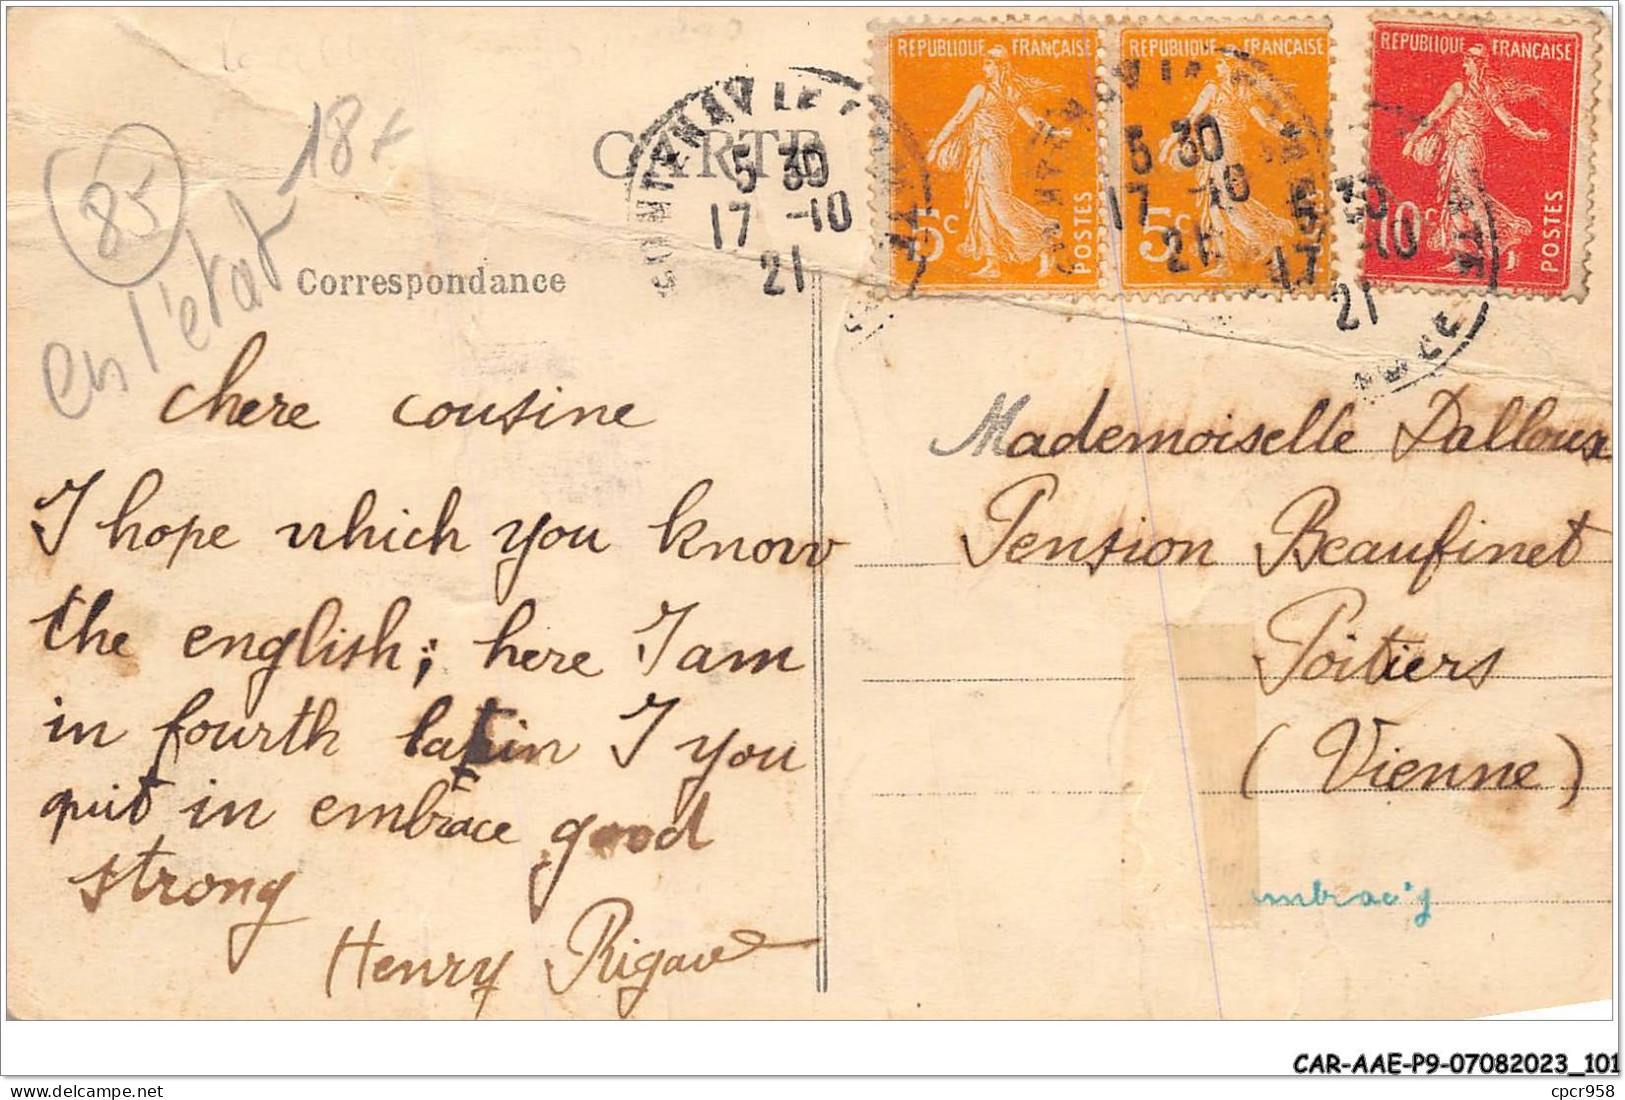 REPUBLIQUE FRANÇAISE
5c
POSTES
REPUBLIQUE FRANÇAISE
5c
POSTES
REPUBLIQUE FRANÇAISE
10c
POSTES
5 30
17 -10
21
5 30
17 -10
21
30
17 -10
21
85
18f
en l'état
CARTE
Correspondance
chere cousine
I hope which you know
the english; here I am
in fourth latin I you
quit in embrace good
strong
Henry
Mademoiselle Dalloux
Pension Beaufinet
Poitiers
(Vienne)
CAR-AAE-P9-07082023_101
cpcr958